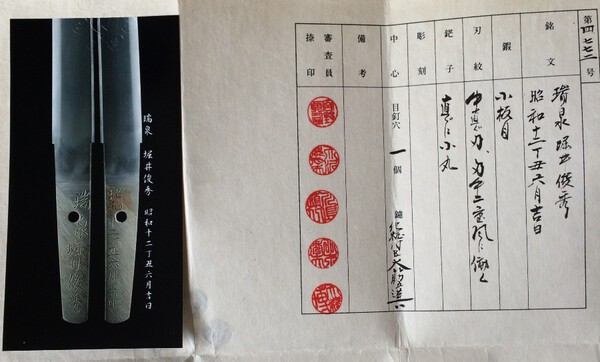 第四七七二号
銘文
瑞泉 堀井俊秀
昭和十二丁丑六月吉日
鍛
小板目
刃紋
中直刃、刃中二重風に働く
鋩子
直に小丸
彫刻
中心
目釘穴 一個
鑢 大筋違
備考
審査員
捺印
瑞泉 堀井俊秀 昭和十二丁丑六月吉日